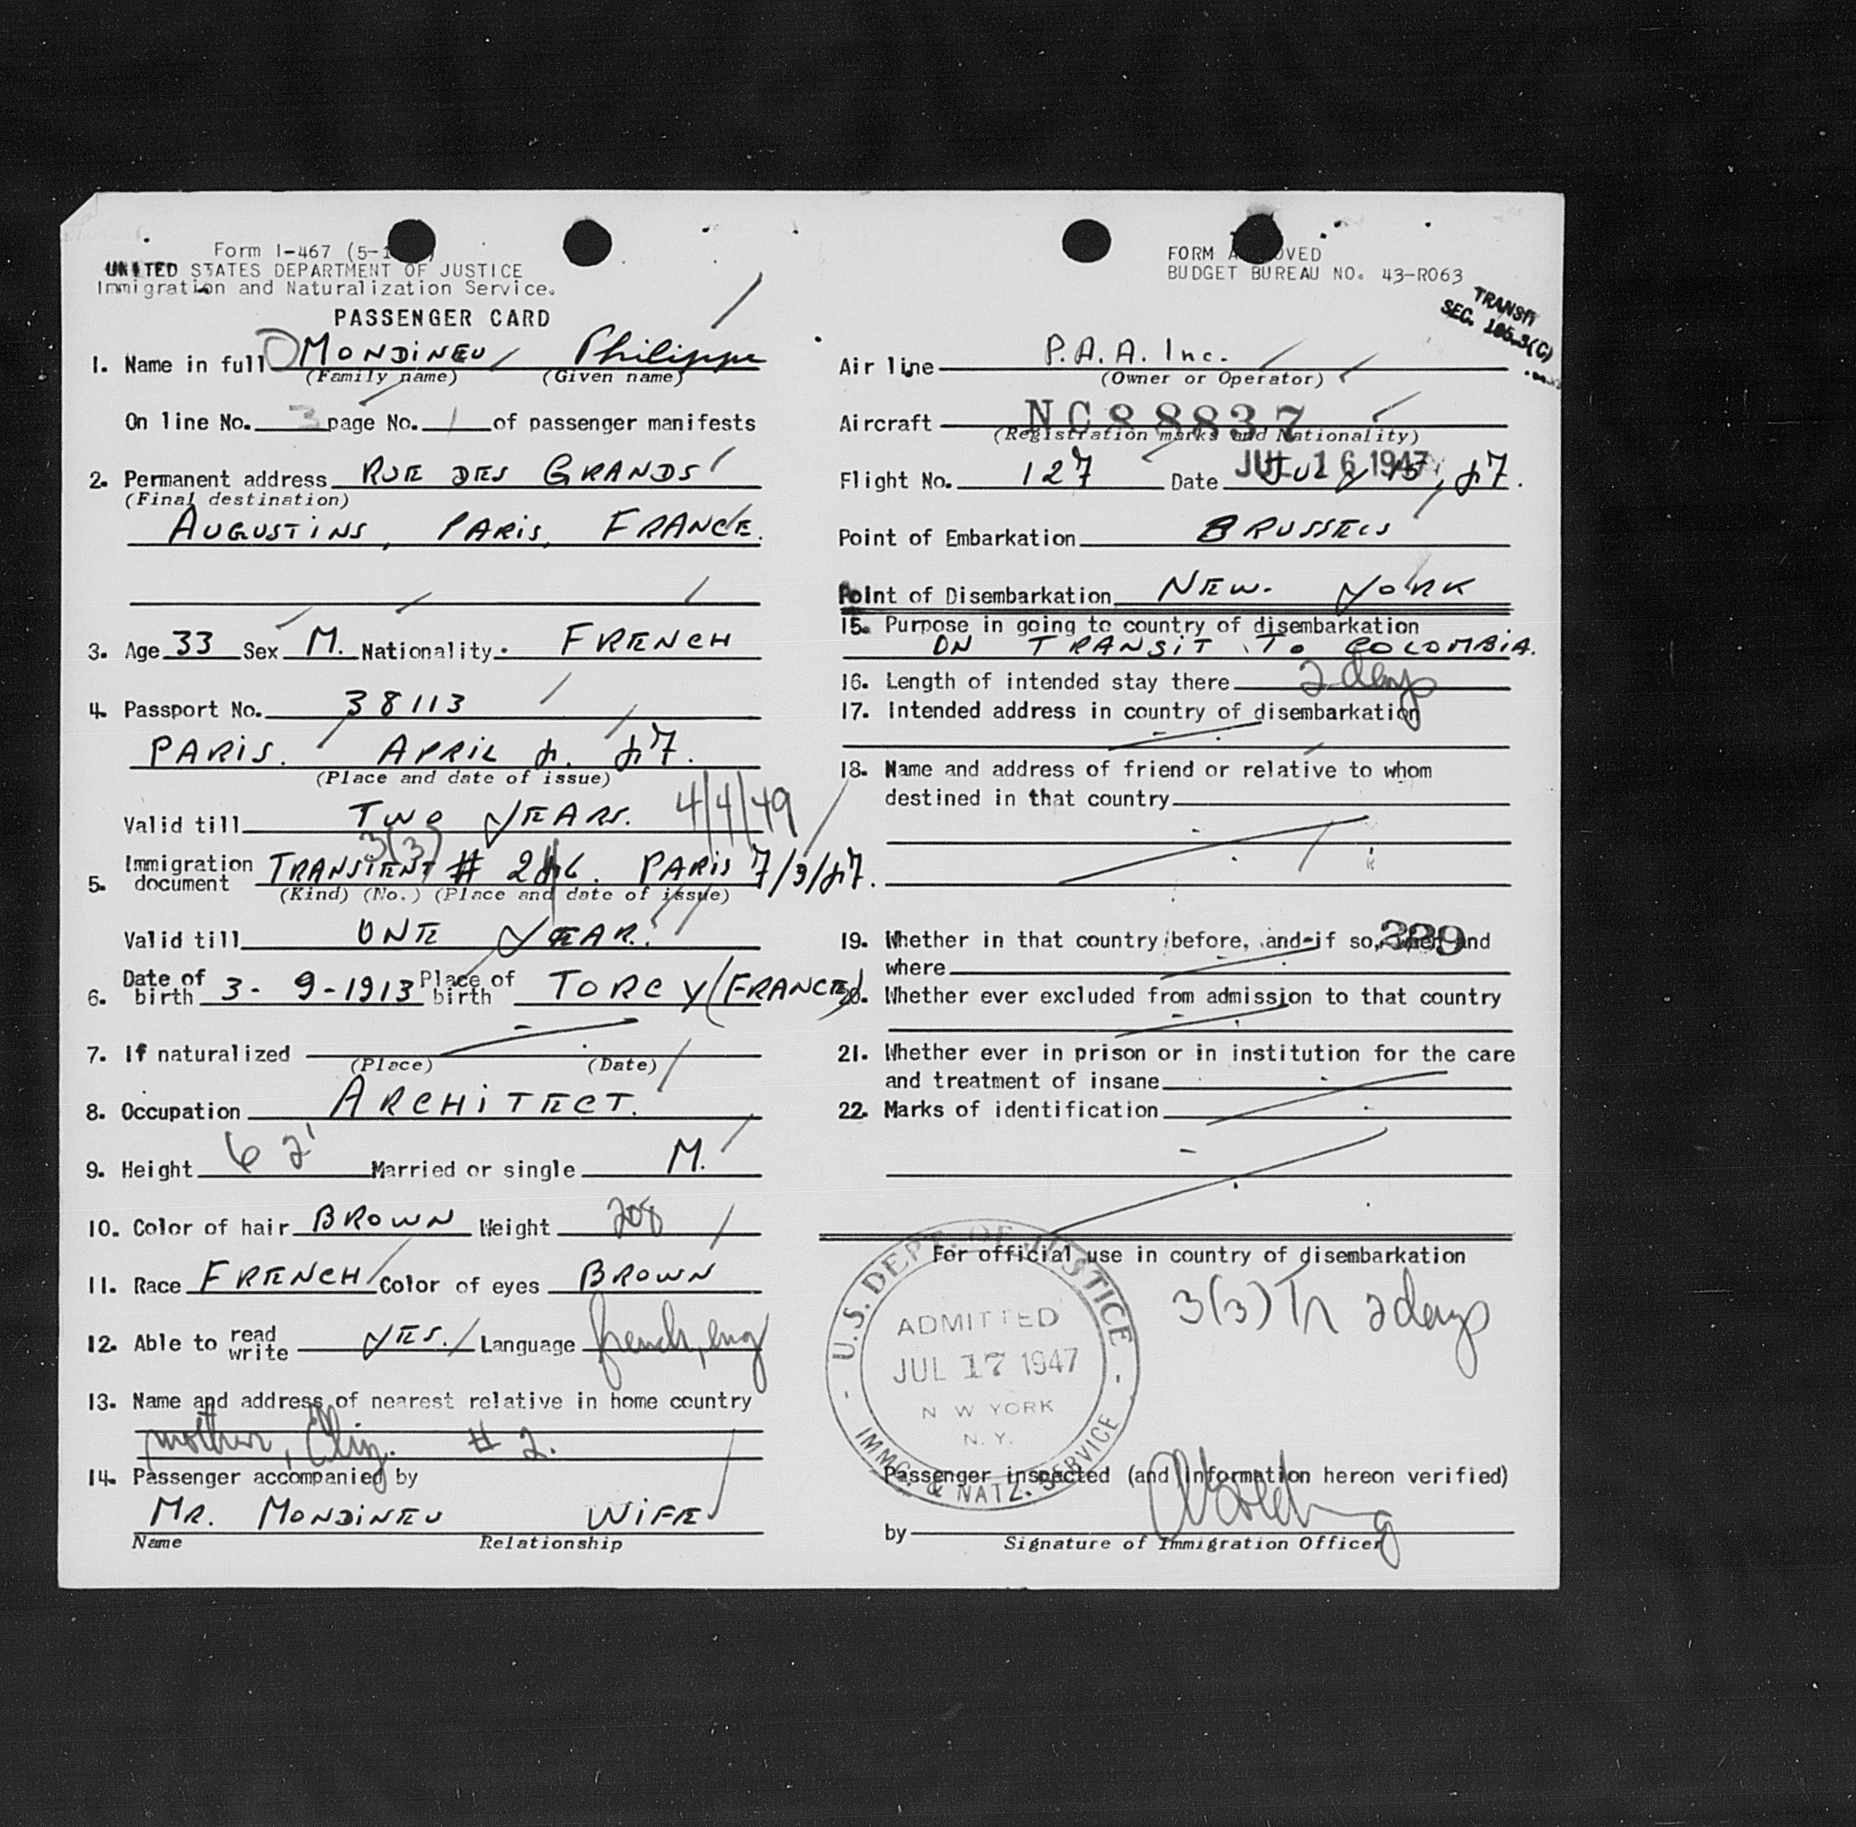 Form I-467 (5-1
UNITED STATES DEPARTMENT OF JUSTICE
Immigration and Naturalization Service.
PASSENGER CARD
1. Name in full MONDINEU Philippe
(Family name) (Given name)
On line No. 3 page No. 1 of passenger manifests
2. Permanent address RUE DES GRANDS
(Final destination)
AUGUSTINS, PARIS, FRANCE.
3. Age 33 Sex M. Nationality FRENCH
4. Passport No. 38113
PARIS. APRIL 4. 47.
(Place and date of issue)
Valid till TWO YEARS. 4/4/49
3(3)
5. Immigration document TRANSIENT # 246. PARIS 7/3/47.
(Kind) (No.) (Place and date of issue)
Valid till ONE YEAR.
6. Date of birth 3-9-1913 Place of birth TORCY (FRANCE)
7. If naturalized
(Place) (Date)
8. Occupation ARCHITECT.
9. Height 6 2' Married or single M.
10. Color of hair BROWN Weight 208
11. Race FRENCH Color of eyes BROWN
12. Able to read write YES. Language french, eng
13. Name and address of nearest relative in home country
mother, # 2.
14. Passenger accompanied by
MR. MONDINEU WIFE
Name Relationship
FORM A OVED
BUDGET BUREAU NO. 43-R063
TRANSIT
SEC. 105.3(C)
Air line P.A.A. Inc.
(Owner or Operator)
Aircraft NC88837
(Registration marks and Nationality)
JUL 16 1947
Flight No. 127 Date JULY 15, 47.
Point of Embarkation BRUSSELS
Point of Disembarkation NEW-YORK
15. Purpose in going to country of disembarkation
ON TRANSIT TO COLOMBIA.
16. Length of intended stay there 2 days
17. Intended address in country of disembarkation
18. Name and address of friend or relative to whom
destined in that country
19. Whether in that country before, and if so, when and
329
where
20. Whether ever excluded from admission to that country
21. Whether ever in prison or in institution for the care
and treatment of insane
22. Marks of identification
For official use in country of disembarkation
3(3) Tr 2 days
U.S. DEPT. OF JUSTICE
ADMITTED
JUL 17 1947
N W YORK
N. Y.
IMMG. & NATZ. SERVICE
Passenger inspected (and information hereon verified)
by
Signature of Immigration Officer